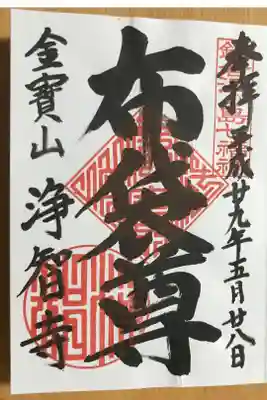 奉拝 平成廿九年五月廿八日
布袋尊
金寶山 浄智寺